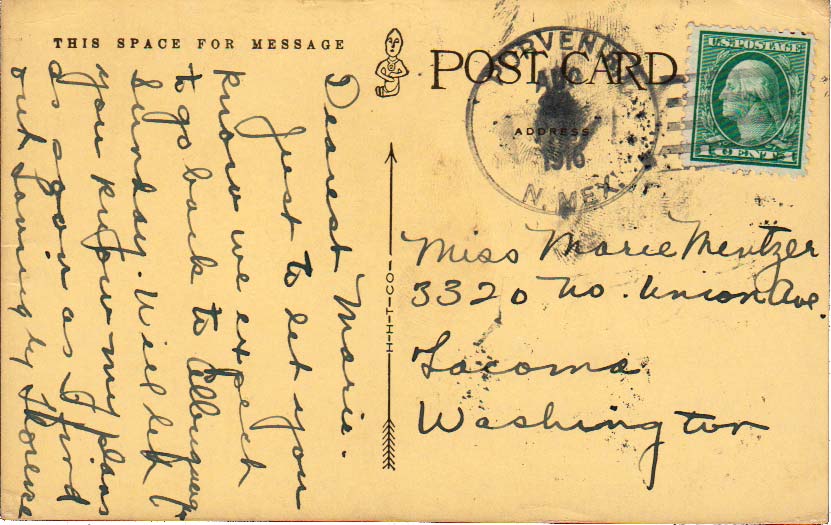 THIS SPACE FOR MESSAGE
Dearest Marie.
Just to let you
know we expect
to go back to
Sunday. Will let
you know my plans
as soon as I find
out. Loving
H-H-T-CO.
POST CARD
ADDRESS
1916
N. MEX.
U.S. POSTAGE
1 CENT 1
Miss Marie Mentzer
3320 No. Union Ave.
Tacoma
Washington